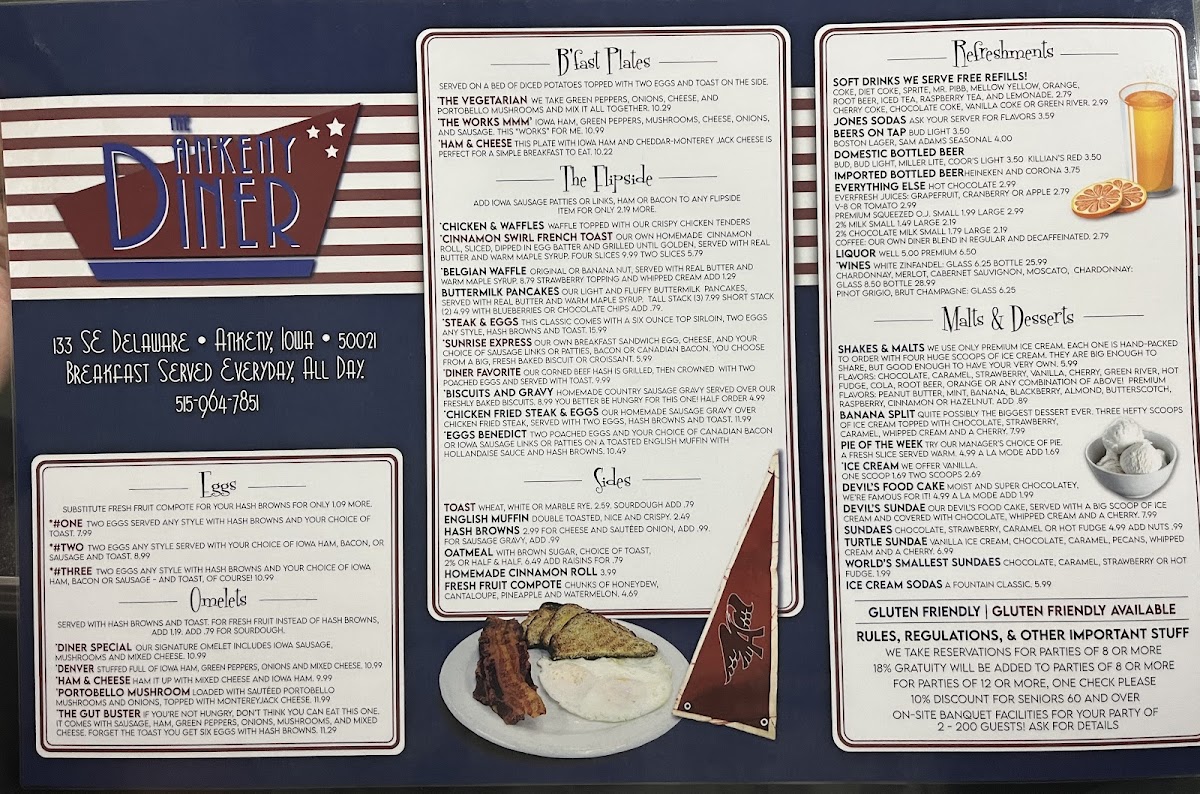 THE
ANKENY
DINER
133 SE DELAWARE • ANKENY, IOWA • 50021
BREAKFAST SERVED EVERYDAY, ALL DAY.
515-964-7851
Eggs
SUBSTITUTE FRESH FRUIT COMPOTE FOR YOUR HASH BROWNS FOR ONLY 1.09 MORE.
*#ONE TWO EGGS SERVED ANY STYLE WITH HASH BROWNS AND YOUR CHOICE OF
TOAST. 7.99
*#TWO TWO EGGS ANY STYLE SERVED WITH YOUR CHOICE OF IOWA HAM, BACON, OR
SAUSAGE AND TOAST. 8.99
*#THREE TWO EGGS ANY STYLE WITH HASH BROWNS AND YOUR CHOICE OF IOWA
HAM, BACON OR SAUSAGE - AND TOAST, OF COURSE! 10.99
Omelets
SERVED WITH HASH BROWNS AND TOAST. FOR FRESH FRUIT INSTEAD OF HASH BROWNS,
ADD 1.19. ADD .79 FOR SOURDOUGH.
*DINER SPECIAL OUR SIGNATURE OMELET INCLUDES IOWA SAUSAGE,
MUSHROOMS AND MIXED CHEESE. 10.99
*DENVER STUFFED FULL OF IOWA HAM, GREEN PEPPERS, ONIONS AND MIXED CHEESE. 10.99
*HAM & CHEESE HAM IT UP WITH MIXED CHEESE AND IOWA HAM. 9.99
*PORTOBELLO MUSHROOM LOADED WITH SAUTÉED PORTOBELLO
MUSHROOMS AND ONIONS, TOPPED WITH MONTEREYJACK CHEESE. 11.99
*THE GUT BUSTER IF YOU'RE NOT HUNGRY, DON'T THINK YOU CAN EAT THIS ONE.
IT COMES WITH SAUSAGE, HAM, GREEN PEPPERS, ONIONS, MUSHROOMS, AND MIXED
CHEESE. FORGET THE TOAST YOU GET SIX EGGS WITH HASH BROWNS. 11.29
B'fast Plates
SERVED ON A BED OF DICED POTATOES TOPPED WITH TWO EGGS AND TOAST ON THE SIDE.
*THE VEGETARIAN WE TAKE GREEN PEPPERS, ONIONS, CHEESE, AND
PORTOBELLO MUSHROOMS AND MIX IT ALL TOGETHER. 10.29
*THE WORKS MMM* IOWA HAM, GREEN PEPPERS, MUSHROOMS, CHEESE, ONIONS,
AND SAUSAGE. THIS "WORKS" FOR ME. 10.99
*HAM & CHEESE THIS PLATE WITH IOWA HAM AND CHEDDAR-MONTEREY JACK CHEESE IS
PERFECT FOR A SIMPLE BREAKFAST TO EAT. 10.22
The Flipside
ADD IOWA SAUSAGE PATTIES OR LINKS, HAM OR BACON TO ANY FLIPSIDE
ITEM FOR ONLY 2.19 MORE.
*CHICKEN & WAFFLES WAFFLE TOPPED WITH OUR CRISPY CHICKEN TENDERS
*CINNAMON SWIRL FRENCH TOAST OUR OWN HOMEMADE CINNAMON
ROLL, SLICED, DIPPED IN EGG BATTER AND GRILLED UNTIL GOLDEN, SERVED WITH REAL
BUTTER AND WARM MAPLE SYRUP. FOUR SLICES 9.99 TWO SLICES 5.79
*BELGIAN WAFFLE ORIGINAL OR BANANA NUT, SERVED WITH REAL BUTTER AND
WARM MAPLE SYRUP. 8.79 STRAWBERRY TOPPING AND WHIPPED CREAM ADD 1.29
BUTTERMILK PANCAKES OUR LIGHT AND FLUFFY BUTTERMILK PANCAKES,
SERVED WITH REAL BUTTER AND WARM MAPLE SYRUP. TALL STACK (3) 7.99 SHORT STACK
(2) 4.99 WITH BLUEBERRIES OR CHOCOLATE CHIPS ADD .79.
*STEAK & EGGS THIS CLASSIC COMES WITH A SIX OUNCE TOP SIRLOIN, TWO EGGS
ANY STYLE, HASH BROWNS AND TOAST. 15.99
*SUNRISE EXPRESS OUR OWN BREAKFAST SANDWICH EGG, CHEESE, AND YOUR
CHOICE OF SAUSAGE LINKS OR PATTIES, BACON OR CANADIAN BACON. YOU CHOOSE
FROM A BIG, FRESH BAKED BISCUIT OR CROISSANT. 5.99
*DINER FAVORITE OUR CORNED BEEF HASH IS GRILLED, THEN CROWNED WITH TWO
POACHED EGGS AND SERVED WITH TOAST. 9.99
*BISCUITS AND GRAVY HOMEMADE COUNTRY SAUSAGE GRAVY SERVED OVER OUR
FRESHLY BAKED BISCUITS. 8.99 YOU BETTER BE HUNGRY FOR THIS ONE! HALF ORDER 4.99
*CHICKEN FRIED STEAK & EGGS OUR HOMEMADE SAUSAGE GRAVY OVER
CHICKEN FRIED STEAK, SERVED WITH TWO EGGS, HASH BROWNS AND TOAST. 11.99
*EGGS BENEDICT TWO POACHED EGGS AND YOUR CHOICE OF CANADIAN BACON
OR IOWA SAUSAGE LINKS OR PATTIES ON A TOASTED ENGLISH MUFFIN WITH
HOLLANDAISE SAUCE AND HASH BROWNS. 10.49
Sides
TOAST WHEAT, WHITE OR MARBLE RYE. 2.59. SOURDOUGH ADD .79
ENGLISH MUFFIN DOUBLE TOASTED, NICE AND CRISPY. 2.49
HASH BROWNS 2.99 FOR CHEESE AND SAUTÉED ONION, ADD .99.
FOR SAUSAGE GRAVY, ADD .99
OATMEAL WITH BROWN SUGAR, CHOICE OF TOAST,
2% OR HALF & HALF, 6.49 ADD RAISINS FOR .79
HOMEMADE CINNAMON ROLL 3.99
FRESH FRUIT COMPOTE CHUNKS OF HONEYDEW,
CANTALOUPE, PINEAPPLE AND WATERMELON. 4.69
Refreshments
SOFT DRINKS WE SERVE FREE REFILLS!
COKE, DIET COKE, SPRITE, MR. PIBB, MELLOW YELLOW, ORANGE,
ROOT BEER, ICED TEA, RASPBERRY TEA, AND LEMONADE. 2.79
CHERRY COKE, CHOCOLATE COKE, VANILLA COKE OR GREEN RIVER. 2.99
JONES SODAS ASK YOUR SERVER FOR FLAVORS 3.59
BEERS ON TAP BUD LIGHT 3.50
BOSTON LAGER, SAM ADAMS SEASONAL 4.00
DOMESTIC BOTTLED BEER
BUD, BUD LIGHT, MILLER LITE, COOR'S LIGHT 3.50 KILLIAN'S RED 3.50
IMPORTED BOTTLED BEER HEINEKEN AND CORONA 3.75
EVERYTHING ELSE HOT CHOCOLATE 2.99
EVERFRESH JUICES: GRAPEFRUIT, CRANBERRY OR APPLE 2.79
V-8 OR TOMATO 2.99
PREMIUM SQUEEZED O.J. SMALL 1.99 LARGE 2.99
2% MILK SMALL 1.49 LARGE 2.19
2% CHOCOLATE MILK SMALL 1.79 LARGE 2.19
COFFEE: OUR OWN DINER BLEND IN REGULAR AND DECAFFEINATED. 2.79
LIQUOR WELL 5.00 PREMIUM 6.50
*WINES WHITE ZINFANDEL: GLASS 6.25 BOTTLE 25.99
CHARDONNAY, MERLOT, CABERNET SAUVIGNON, MOSCATO, CHARDONNAY:
GLASS 8.50 BOTTLE 28.99
PINOT GRIGIO, BRUT CHAMPAGNE: GLASS 6.25
Malts & Desserts
SHAKES & MALTS WE USE ONLY PREMIUM ICE CREAM. EACH ONE IS HAND-PACKED
TO ORDER WITH FOUR HUGE SCOOPS OF ICE CREAM. THEY ARE BIG ENOUGH TO
SHARE, BUT GOOD ENOUGH TO HAVE YOUR VERY OWN. 5.99
FLAVORS: CHOCOLATE, CARAMEL, STRAWBERRY, VANILLA, CHERRY, GREEN RIVER, HOT
FUDGE, COLA, ROOT BEER, ORANGE OR ANY COMBINATION OF ABOVE! PREMIUM
FLAVORS: PEANUT BUTTER, MINT, BANANA, BLACKBERRY, ALMOND, BUTTERSCOTCH,
RASPBERRY, CINNAMON OR HAZELNUT. ADD .89
BANANA SPLIT QUITE POSSIBLY THE BIGGEST DESSERT EVER. THREE HEFTY SCOOPS
OF ICE CREAM TOPPED WITH CHOCOLATE, STRAWBERRY,
CARAMEL, WHIPPED CREAM AND A CHERRY. 7.99
PIE OF THE WEEK TRY OUR MANAGER'S CHOICE OF PIE.
A FRESH SLICE SERVED WARM. 4.99 A LA MODE ADD 1.69
*ICE CREAM WE OFFER VANILLA.
ONE SCOOP 1.69 TWO SCOOPS 2.69
DEVIL'S FOOD CAKE MOIST AND SUPER CHOCOLATEY,
WE'RE FAMOUS FOR IT! 4.99 A LA MODE ADD 1.99
DEVIL'S SUNDAE OUR DEVIL'S FOOD CAKE, SERVED WITH A BIG SCOOP OF ICE
CREAM AND COVERED WITH CHOCOLATE, WHIPPED CREAM AND A CHERRY. 7.99
SUNDAES CHOCOLATE, STRAWBERRY, CARAMEL OR HOT FUDGE 4.99 ADD NUTS .99
TURTLE SUNDAE VANILLA ICE CREAM, CHOCOLATE, CARAMEL, PECANS, WHIPPED
CREAM AND A CHERRY. 6.99
WORLD'S SMALLEST SUNDAES CHOCOLATE, CARAMEL, STRAWBERRY OR HOT
FUDGE. 1.99
ICE CREAM SODAS A FOUNTAIN CLASSIC. 5.99
GLUTEN FRIENDLY | GLUTEN FRIENDLY AVAILABLE
RULES, REGULATIONS, & OTHER IMPORTANT STUFF
WE TAKE RESERVATIONS FOR PARTIES OF 8 OR MORE
18% GRATUITY WILL BE ADDED TO PARTIES OF 8 OR MORE
FOR PARTIES OF 12 OR MORE, ONE CHECK PLEASE
10% DISCOUNT FOR SENIORS 60 AND OVER
ON-SITE BANQUET FACILITIES FOR YOUR PARTY OF
2 - 200 GUESTS! ASK FOR DETAILS